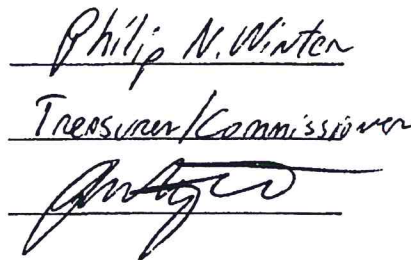 Philip N. Winter
Treasurer/Commissioner